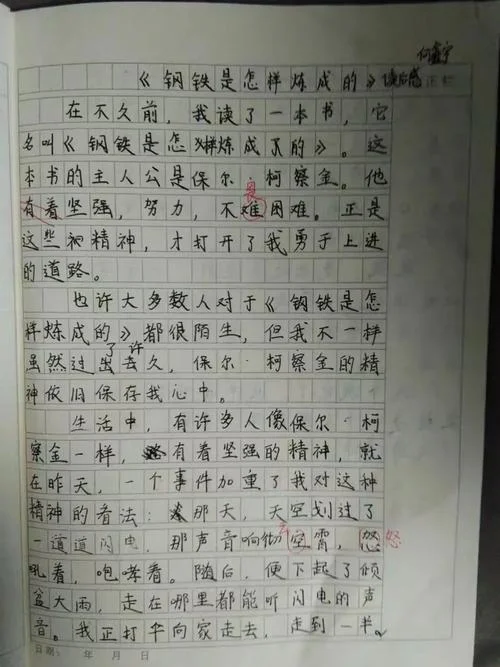 何鑫宁
《钢铁是怎样炼成的》读后感
在不久前，我读了一本书，它
名叫《钢铁是怎样炼成了的》。这
本书的主人公是保尔·柯察金。他
有着坚强，努力，不难困难。正是
畏
这些神精神，才打开了我勇于上进
的道路。
也许大多数人对于《钢铁是怎
样炼成的》都很陌生，但我不一样
虽然过出去了许久，保尔·柯察金的精
神依旧保存我心中。
生活中，有许多人像保尔·柯
察金一样，有着坚强的精神，就
在昨天，一个事件加重了我对这种
精神的看法：那天，天空划过了
一道道闪电，那声音响彻空霄，怒
云
怒
吼着，咆孝着。随后，便下起了倾
盆大雨，走在哪里都能听闪电的声
音。我正打伞向家走去，走到一半。
日期： 年 月 日